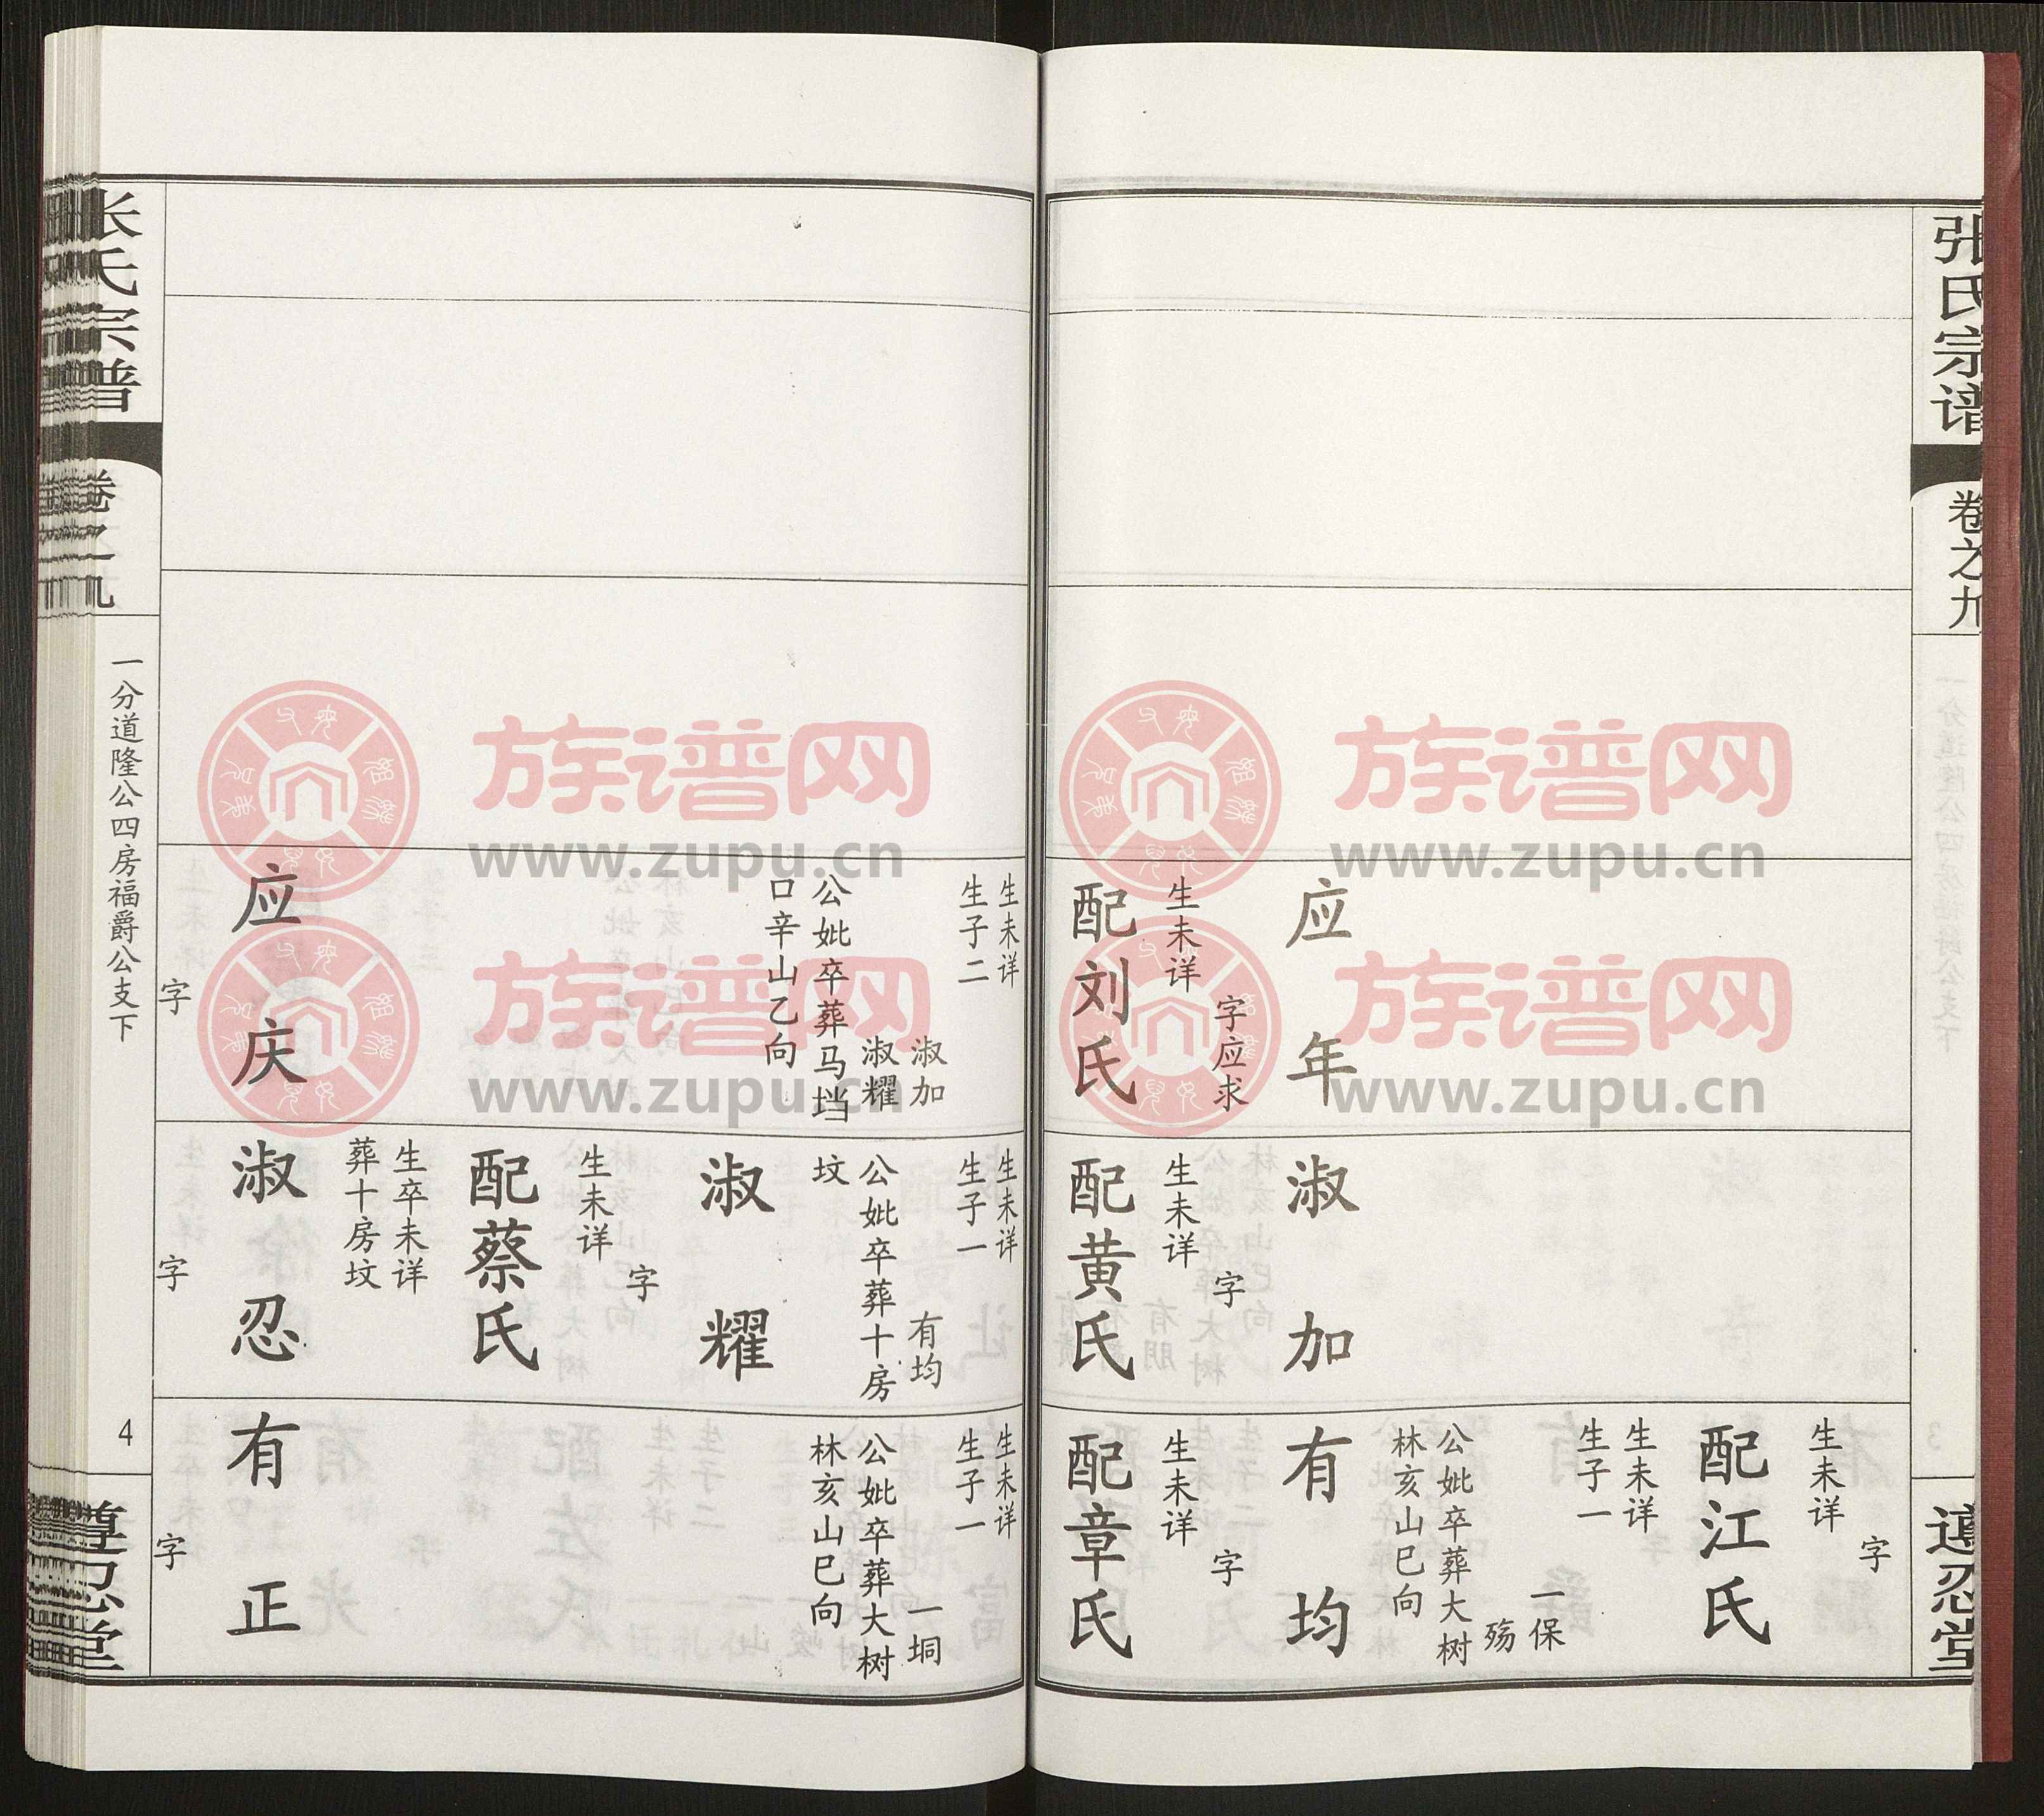 张氏宗谱
卷之九
遵忍堂
应年
字应求
生未详
配刘氏
生未详
生子二
淑加
淑耀
公妣卒葬马垱
口辛山乙向
应庆
字
淑加
字
生未详
配黄氏
生未详
生子一
有均
公妣卒葬十房
坟
淑耀
字
生未详
配蔡氏
生卒未详
葬十房坟
淑忍
字
字
生未详
配江氏
生未详
生子一
一保
殇
公妣卒葬大树
林亥山巳向
有均
字
生未详
配章氏
生未详
生子一
一垌
公妣卒葬大树
林亥山巳向
有正
字
张氏宗谱
卷之九
一分道隆公四房福爵公支下
4
遵忍堂
族谱网
www.zupu.cn
族谱网
www.zupu.cn
族谱网
www.zupu.cn
族谱网
www.zupu.cn